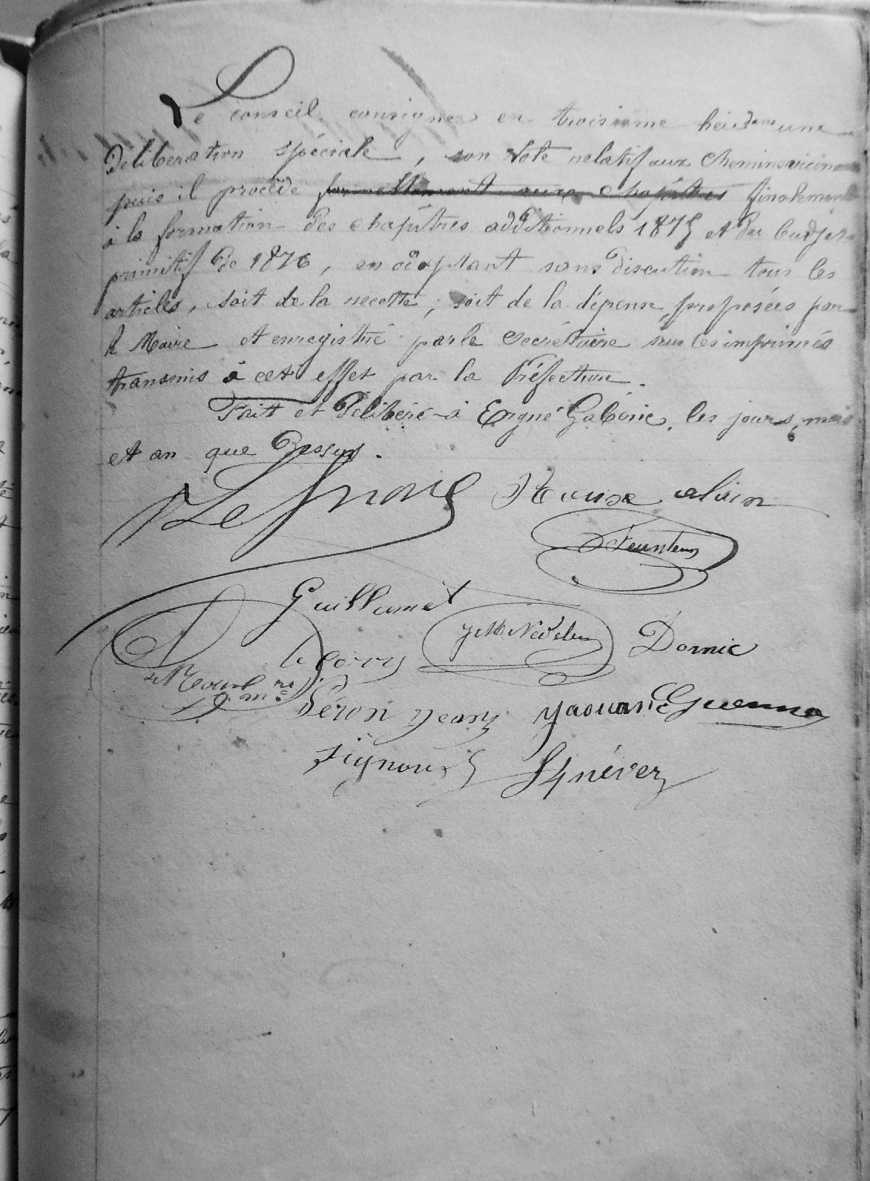 Le Conseil consigne en troisième lieu dans une
délibération spéciale, son vote relatif aux chemins vicinaux
puis il procède formellement aux chapitres finalement
à la formation des chapitres additionnels 1875 et du budget
primitif de 1876, en adoptant sans discution tous les
articles, soit de la recette, soit de la dépense, proposées par
le Maire et enregistré par le Secrétaire sur les imprimés
transmis à cet effet par la Préfecture.
Fait et délibéré à Ergué Gabéric, les jours, mois
et an que dessus.
Alain
Guillamet
Dornic
Péron Jean
Yaouanc